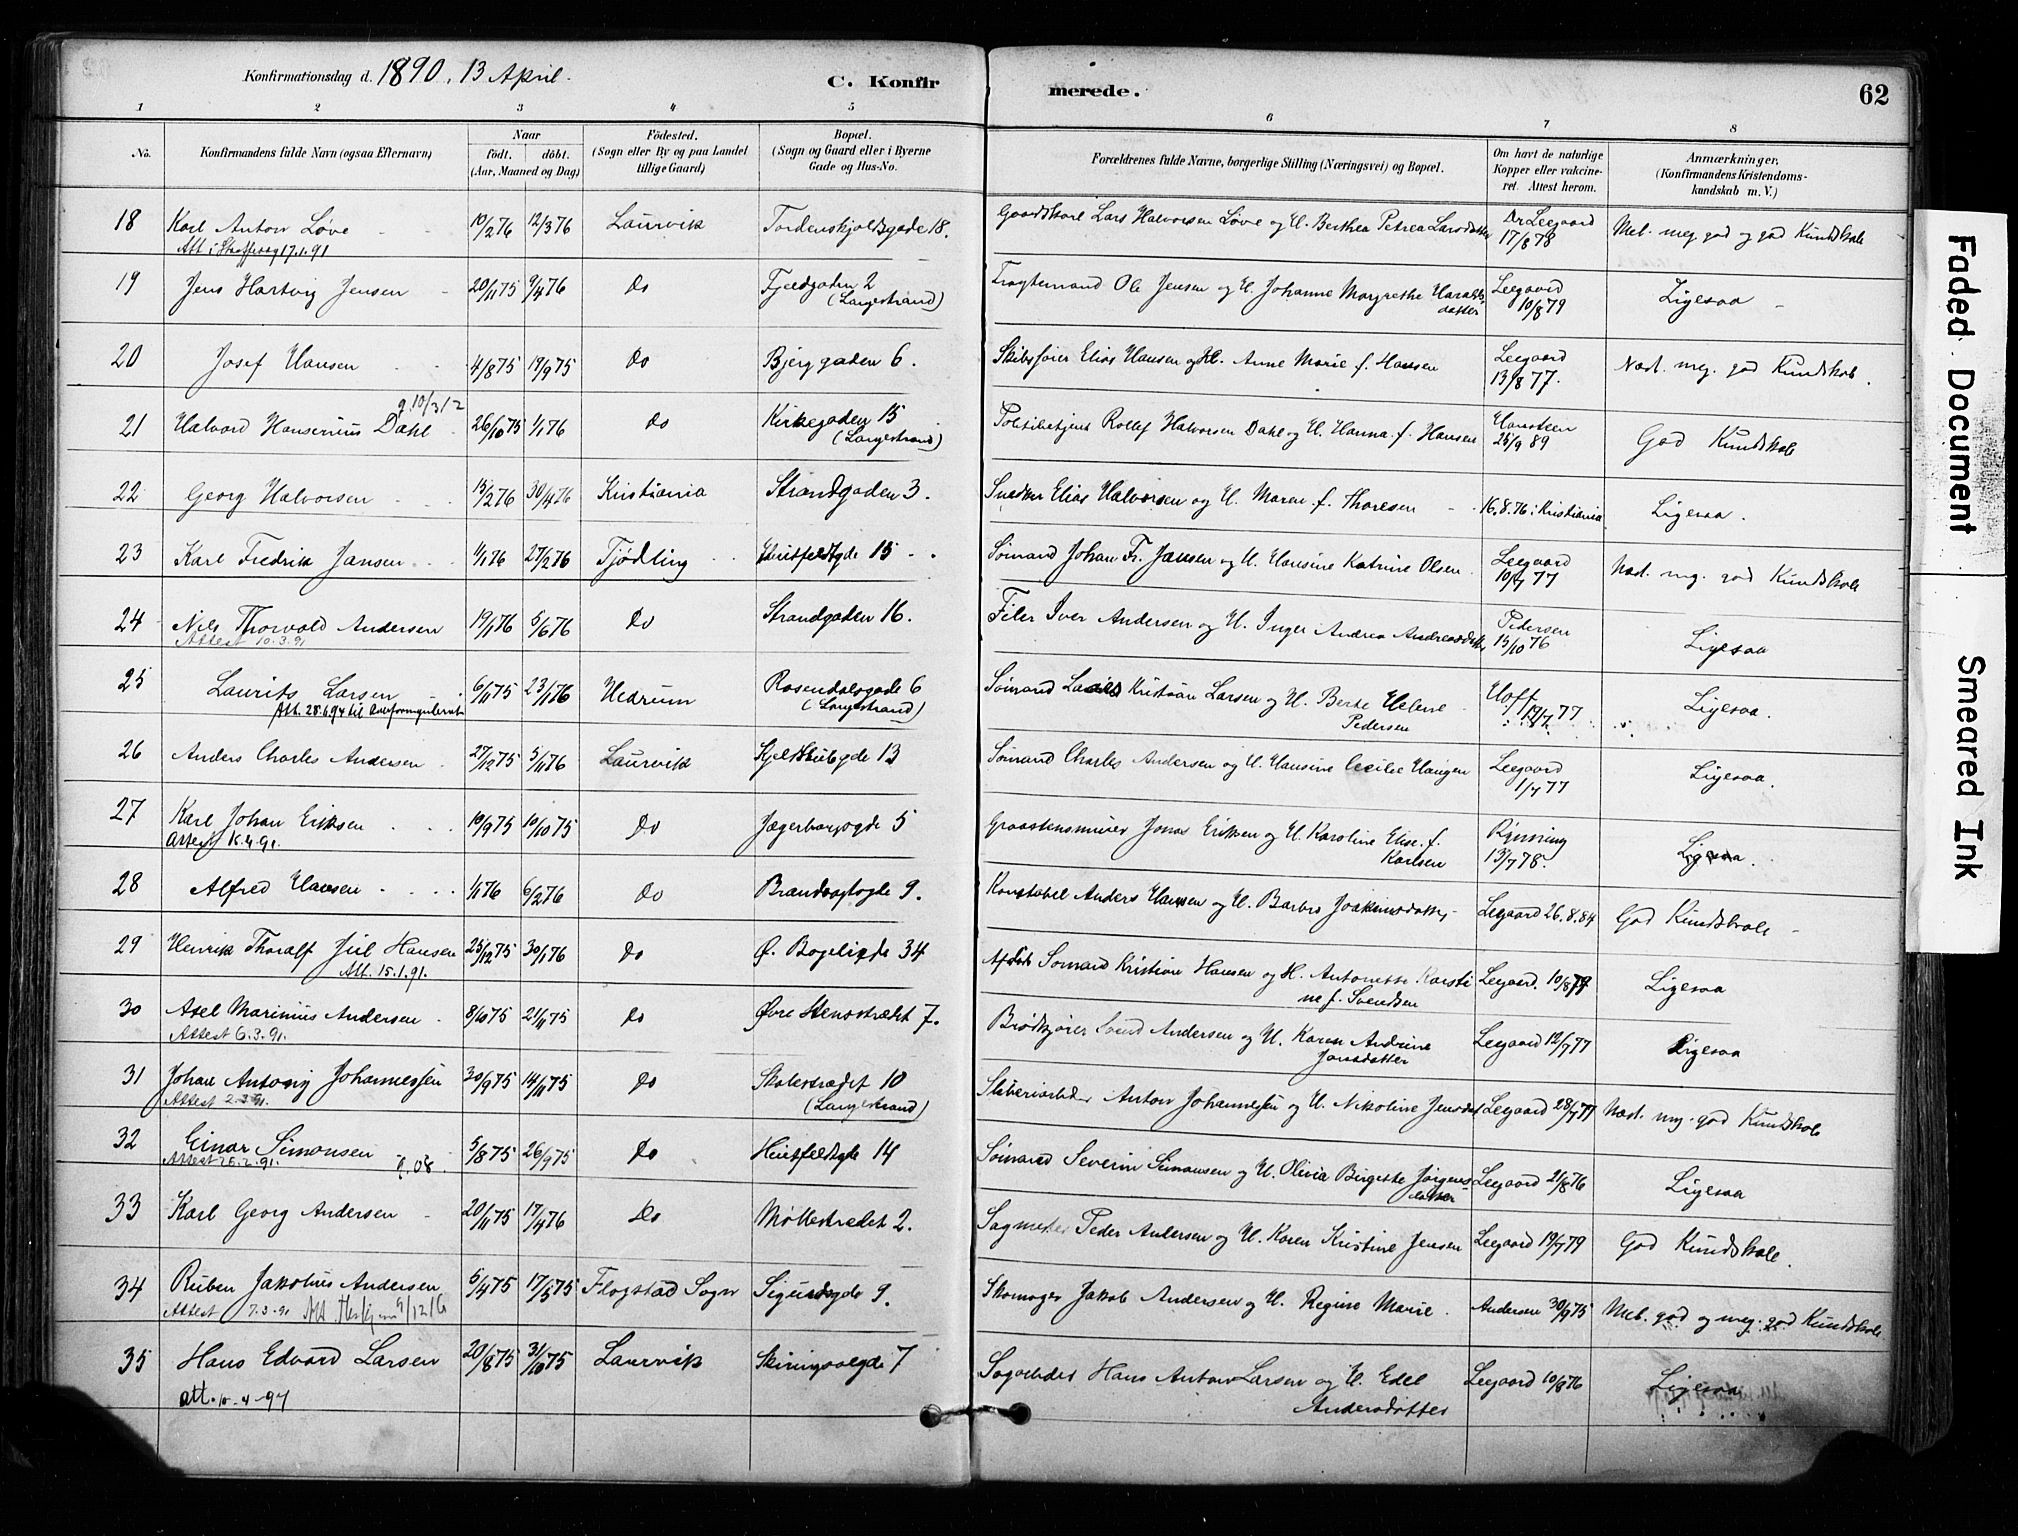 Konfirmationsdag d. 1890, 13 April.
C. Konfirmerede.
62
1 2 3 4 5 6 7 8
No. Konfirmandens fulde Navn (ogsaa Efternavn) Naar födt. döbt. (Aar, Maaned og Dag) Födested. (Sogn eller By og paa Landet tillige Gaard) Bopæl. (Sogn og Gaard eller i Byerne Gade og Hus-No. Forældrenes fulde Navne, borgerlige Stilling (Næringsvei) og Bopæl. Om havt de naturlige Kopper eller vakcineret. Attest herom. Anmærkninger, (Konfirmandens Kristendomskundskab m. V.)
18 Karl Anton Løve 10/2 76 12/3 76 Laurvik Tordenskjoldsgade 18. Gaardskarl Lars Halvorsen Løve og H. Berthea Petrea Larsdatter Dr Leegaard 17/8 78 Mel. meg god og god Kundskab
Att. i 17.1.91
19 Jens Hartvig Jensen 20/11 75 9/4 76 Do Fjeldgaden 2 (Langestrand) Fragtemand Ole Jensen og H. Johanne Margrethe Haraldsdatter Leegaard 10/8 79 Ligesaa
20 Josef Hansen 4/8 75 19/9 75 Do Bjerggaden 6. Skibsfører Elias Hansen og H. Anne Marie f. Hansen Leegaard 13/8 77. Næst. meg. god Kundskab.
g. 10/3 12
21 Halvard Hanserius Dahl 26/10 75 1/1 76 Do Kirkegaden 15 (Langestrand) Politibetjent Rollef Halvorsen Dahl og H. Hanna f. Hansen Hansteen 25/9 89 God Kundskab
22 Georg Halvorsen 15/2 76 30/4 76 Kristiania Strandgaden 3. Snedker Elias Halvorsen og H. Maren f. Thoresen 16.8.76 i Kristiania Ligesaa.
23 Karl Fredrik Jansen 1/1 76 27/2 76 Tjødling Huitfeldtgde 15 Sømand Johan Fr. Jansen og H. Hansine Katrine Olsen Leegaard 10/7 77 Næst. mg. god Kundskab
24 Nils Thorvald Andersen 19/1 76 5/6 76 Do Strandgaden 16. Filer Iver Andersen og H. Inger Andrea Andreasdatter Pedersen 15/10 76 Ligesaa
Attest 10.3.91
25 Laurits Larsen 6/11 75 23/1 76 Hedrum Rosendalsgade 6 (Langestrand) Sømand Kristian Larsen og H. Berte Helene Pedersen Hoft 19/7 77 Ligesaa.
Att. 28.6.94 til
26 Anders Charles Andersen 27/12 75 5/11 76 Laurvik Kjeldshubgde 13 Sømand Charles Andersen og H. Hansine Cecilie Haugen Leegaard 1/7 77 Ligesaa.
27 Karl Johan Eriksen 10/9 75 10/10 75 Do Jægerborggde 5 Graastensmurer Jonas Eriksen og H. Karoline Elise f. Karlsen Rynning 13/7 78. Ligesaa.
Attest 16.4.91.
28 Alfred Hansen 1/1 76 6/2 76 Do Brandvagtsgde 9. Konstabel Anders Hansen og H. Barbro Joakimsdatter Leegaard 26.8.84 God Kundskab
29 Henrik Thoralf Juel Hansen 25/12 75 30/1 76 Do Ø. Bøgeligde 34 Sømand Kristian Hansen og H. Antonette Karstine f. Svendsen Leegaard. 10/8 77 Ligesaa
Att. 15.1.91.
30 Axel Marinius Andersen 8/10 75 21/11 75 Do Øvre Stensstrædet 7. Brødkjører Svend Andersen og H. Karen Andrine Jonsdatter Leegaard 12/7 77 Ligesaa
Attest 6.3.91.
31 Johan Antonij Johannessen 30/9 75 14/11 75 Do Skolestrædet 10 (Langestrand) Sliberiarbeider Anton Johannessen og H. Nikoline Jensdat Leegaard 28/7 77 Næst. mg. god Kundskab
Attest 2.3.91.
32 Einar Simonsen 5/8 75 26/9 75 Do Huitfeldtgde 14 Sømand Severin Simonsen og H. Olivia Birgitte Jørgensdatter Leegaard 21/8 76 Ligesaa
Attest 25.2.91.
33 Karl Georg Andersen 20/11 75 17/4 76 Do Møllestrædet 2. Sagmester Peder Andersen og H. Karen Kristine Jensen Leegaard 19/7 79 God Kundskab.
34 Ruben Jakobius Andersen 5/4 75 17/5 75 Flogstad Sogn Sigurdsgde 9. Skomager Jakob Andersen og H. Regine Marie. Andersen 30/9 75 Mel. god og meg. god Kundskab
Attest 7.3.91 Att. 9/12 16
35 Hans Edvard Larsen 20/8 75 31/10 75 Laurvik Skiringsalgde 7 Sagarbeider Hans Anton Larsen og H. Edel Andersdatter Leegaard 10/8 76 Ligesaa
Att. 10-4-97
Faded Document
Smeared Ink